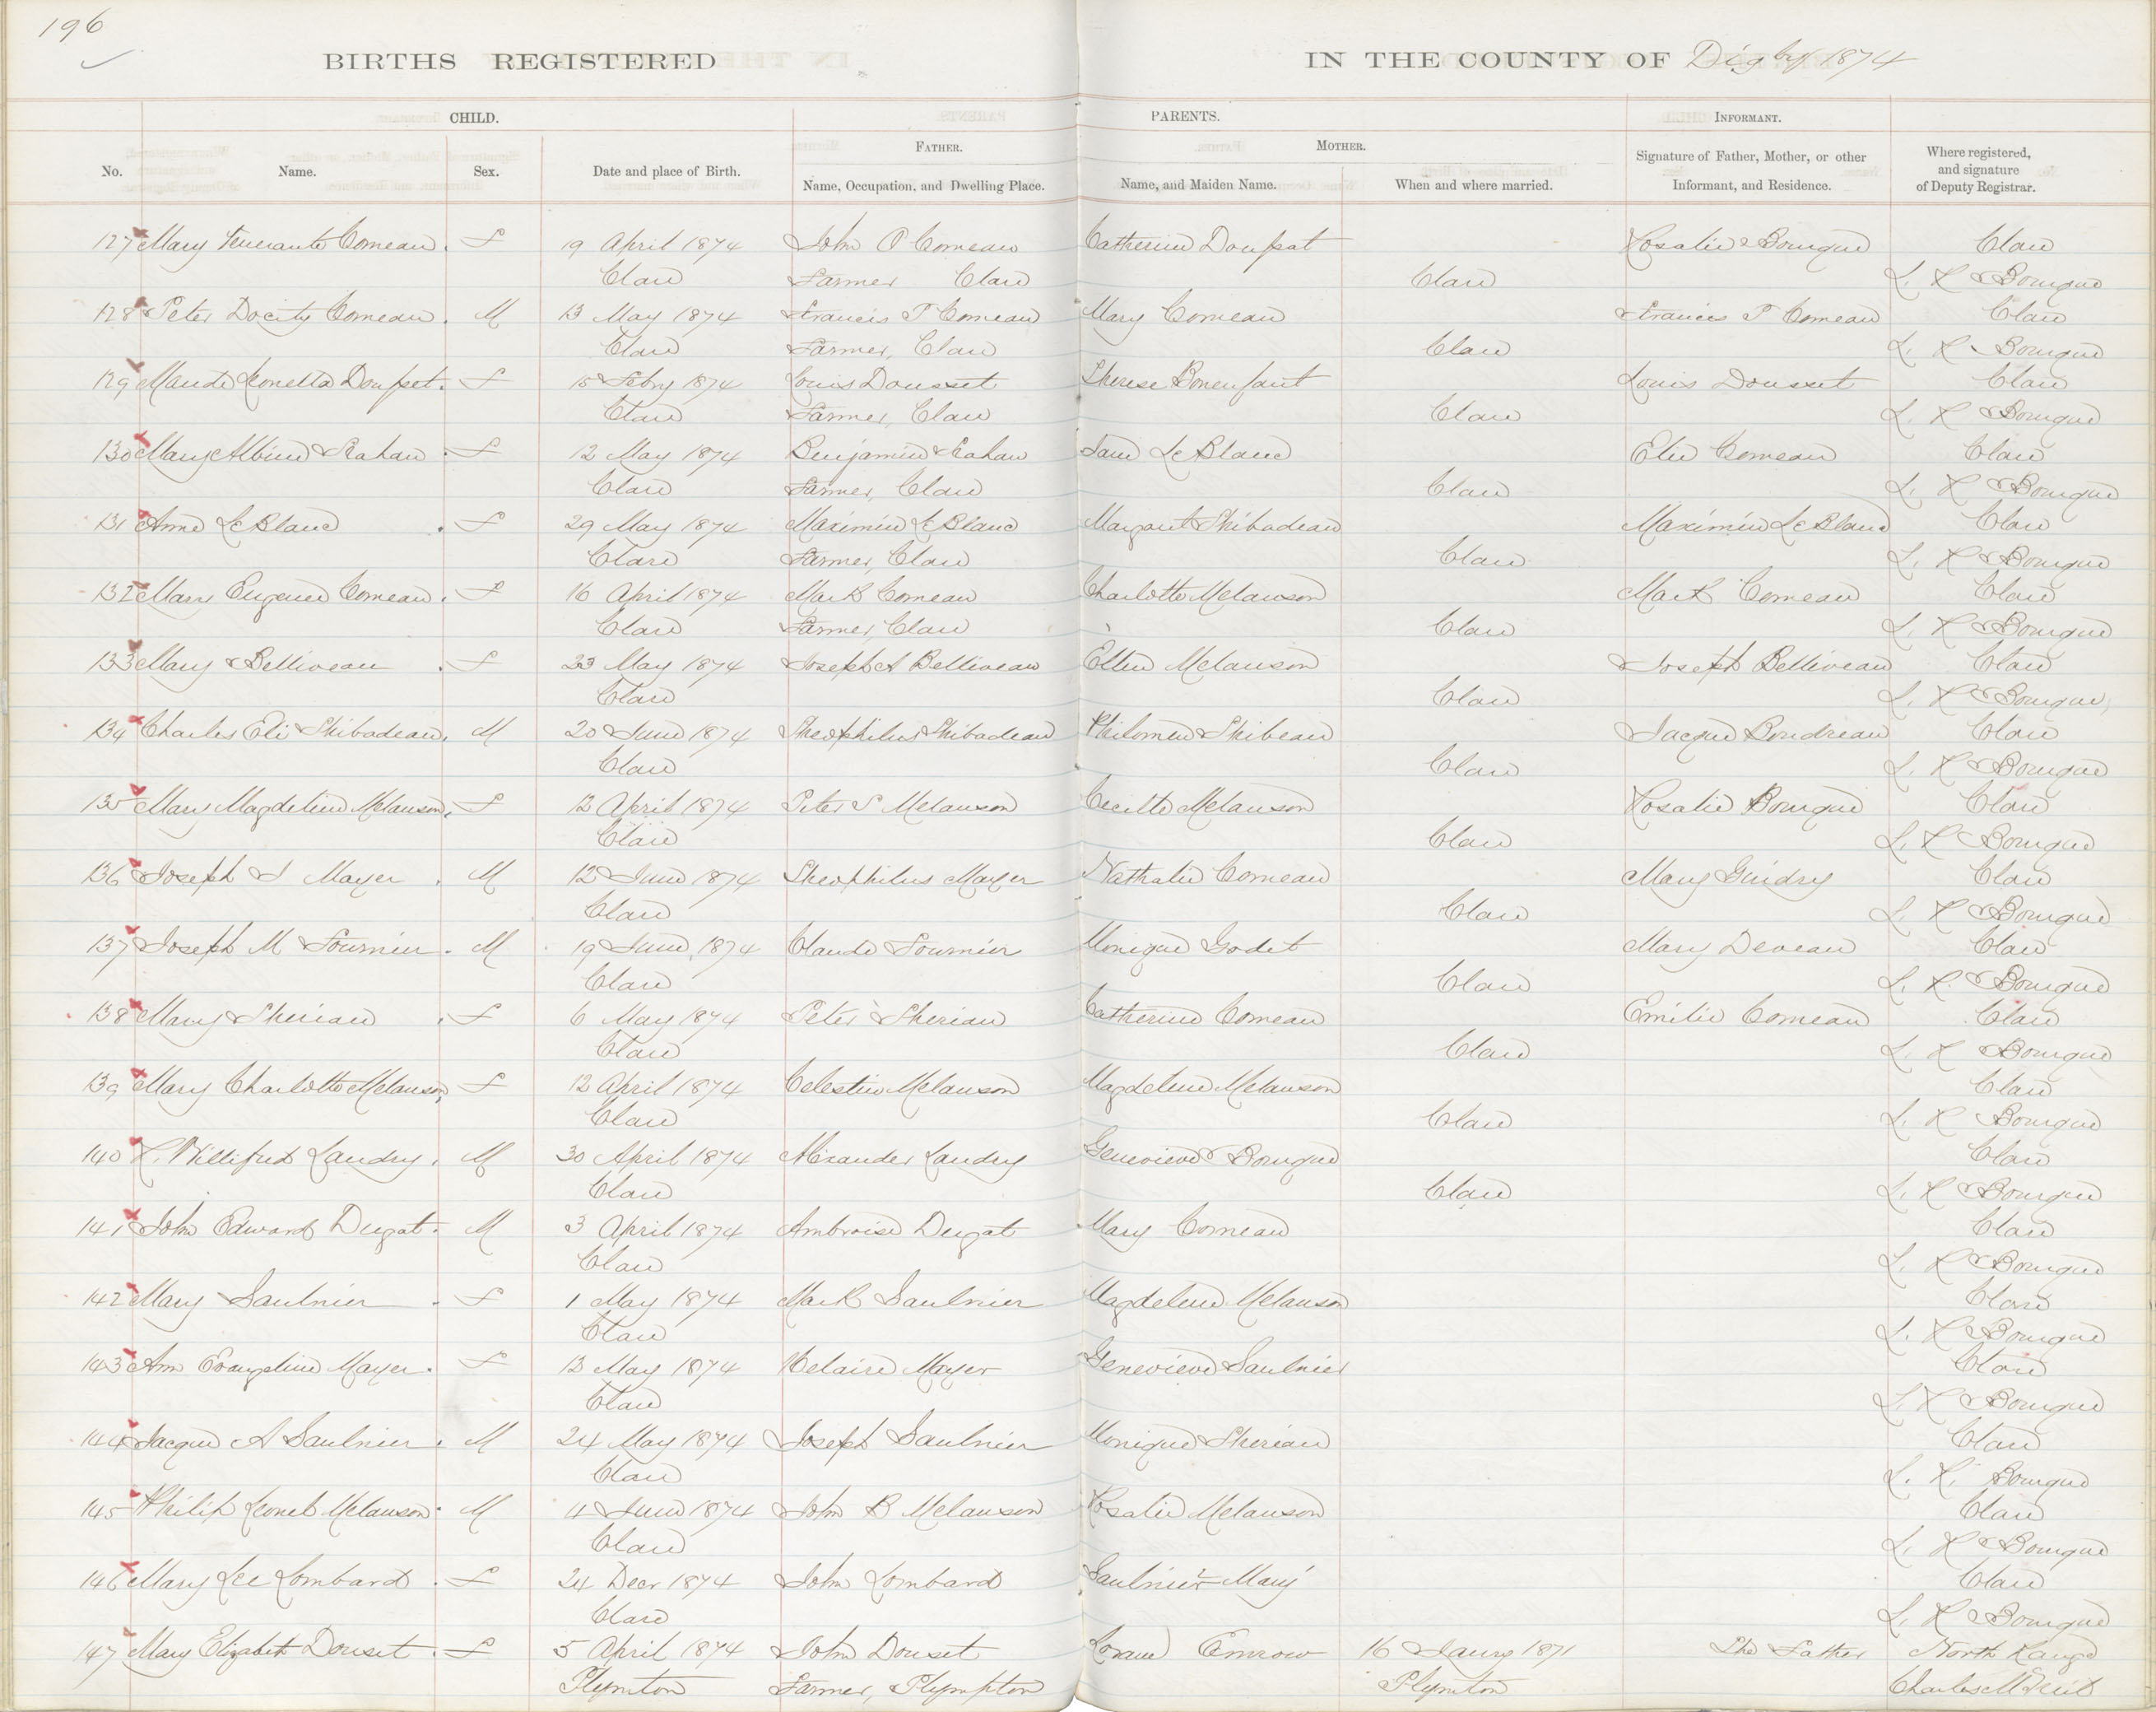 196
BIRTHS REGISTERED IN THE COUNTY OF Digby 1874
CHILD. PARENTS. INFORMANT.
FATHER. MOTHER.
No. Name. Sex. Date and place of Birth. Name, Occupation, and Dwelling Place. Name, and Maiden Name. When and where married. Signature of Father, Mother, or other Informant, and Residence. Where registered, and signature of Deputy Registrar.
127 Mary Comeau. F 19 April 1874 John O Comeau Catherine Doucet Rosalie Bourque Clare
Clare Farmer Clare Clare L. H Bourque
128 Peter Docity Comeau. M 13 May 1874 Francis T Comeau Mary Comeau Francis T Comeau Clare
Clare Farmer, Clare Clare L. H Bourque
129 Maude Doufset. F 15 Feby 1874 Louis Dousset Therese Bonenfant Louis Dousset Clare
Clare Farmer, Clare Clare L. H Bourque
130 Mary Albine Trahan F 12 May 1874 Benjamin Trahan Jane LeBlanc Comeau Clare
Clare Farmer, Clare Clare L. H Bourque
131 Anne LeBlanc F 29 May 1874 Maximin LeBlanc Margaret Thibodeau Maximin LeBlanc Clare
Clare Farmer, Clare Clare L. H Bourque
132 Mary Eugenie Comeau. F 16 April 1874 Mark Comeau Charlotte Melanson Mark Comeau Clare
Clare Farmer, Clare Clare L. H Bourque
133 Mary Belliveau F 23 May 1874 Joseph A Belliveau Ellen Melanson Joseph Belliveau Clare
Clare Clare L. H Bourque
134 Charles Eli Thibodeau. M 20 June 1874 Theophilus Thibodeau Philomen Thibeau Jacque Boudreau Clare
Clare Clare L. H Bourque
135 Mary Magdeline Melanson, F 12 April 1874 Peter S Melanson Cecille Melanson Rosalie Bourque Clare
Clare Clare L. H Bourque
136 Joseph S Mayer M 12 June 1874 Theophilus Mayer Nathalie Comeau Mary Guidry Clare
Clare Clare L. H Bourque
137 Joseph M Fournier. M 19 June, 1874 Claude Fournier Monique Godet Mary Deveau Clare
Clare Clare L. H. Bourque
138 Mary Theriau F 6 May 1874 Peter Theriau Catherine Comeau Emilie Comeau Clare
Clare Clare L. H Bourque
139 Mary Charlotte Melanson F 12 April 1874 Celestin Melanson Magdeline Melanson Clare
Clare Clare L. H Bourque
140 Landry. M 30 April 1874 Alexander Landry Genevieve Bourque Clare
Clare Clare L. H Bourque
141 John Edward Dugat. M 3 April 1874 Ambroise Dugat Mary Comeau Clare
Clare L. H Bourque
142 Mary Saulnier F 1 May 1874 Mark Saulnier Magdelene Melanson Clare
Clare L. H Bourque
143 Ann Evangeline Mayer. F 13 May 1874 Helaire Mayer Genevieve Saulnier Clare
Clare L. H Bourque
144 Jacque A Saulnier. M 24 May 1874 Joseph Saulnier Monique Theriau Clare
Clare L. H. Bourque
145 Philip Leonel Melanson. M 4 June 1874 John B Melanson Rosalie Melanson Clare
Clare L. H Bourque
146 Mary Lee Lombard. F 24 Decr 1874 John Lombard Saulnier Mary Clare
Clare L. H Bourque
147 Mary Elizabeth Douset. F 5 April 1874 John Douset Emrow 16 Jany 1871 The Father North Range
Plymton Farmer, Plympton Plymton Charles